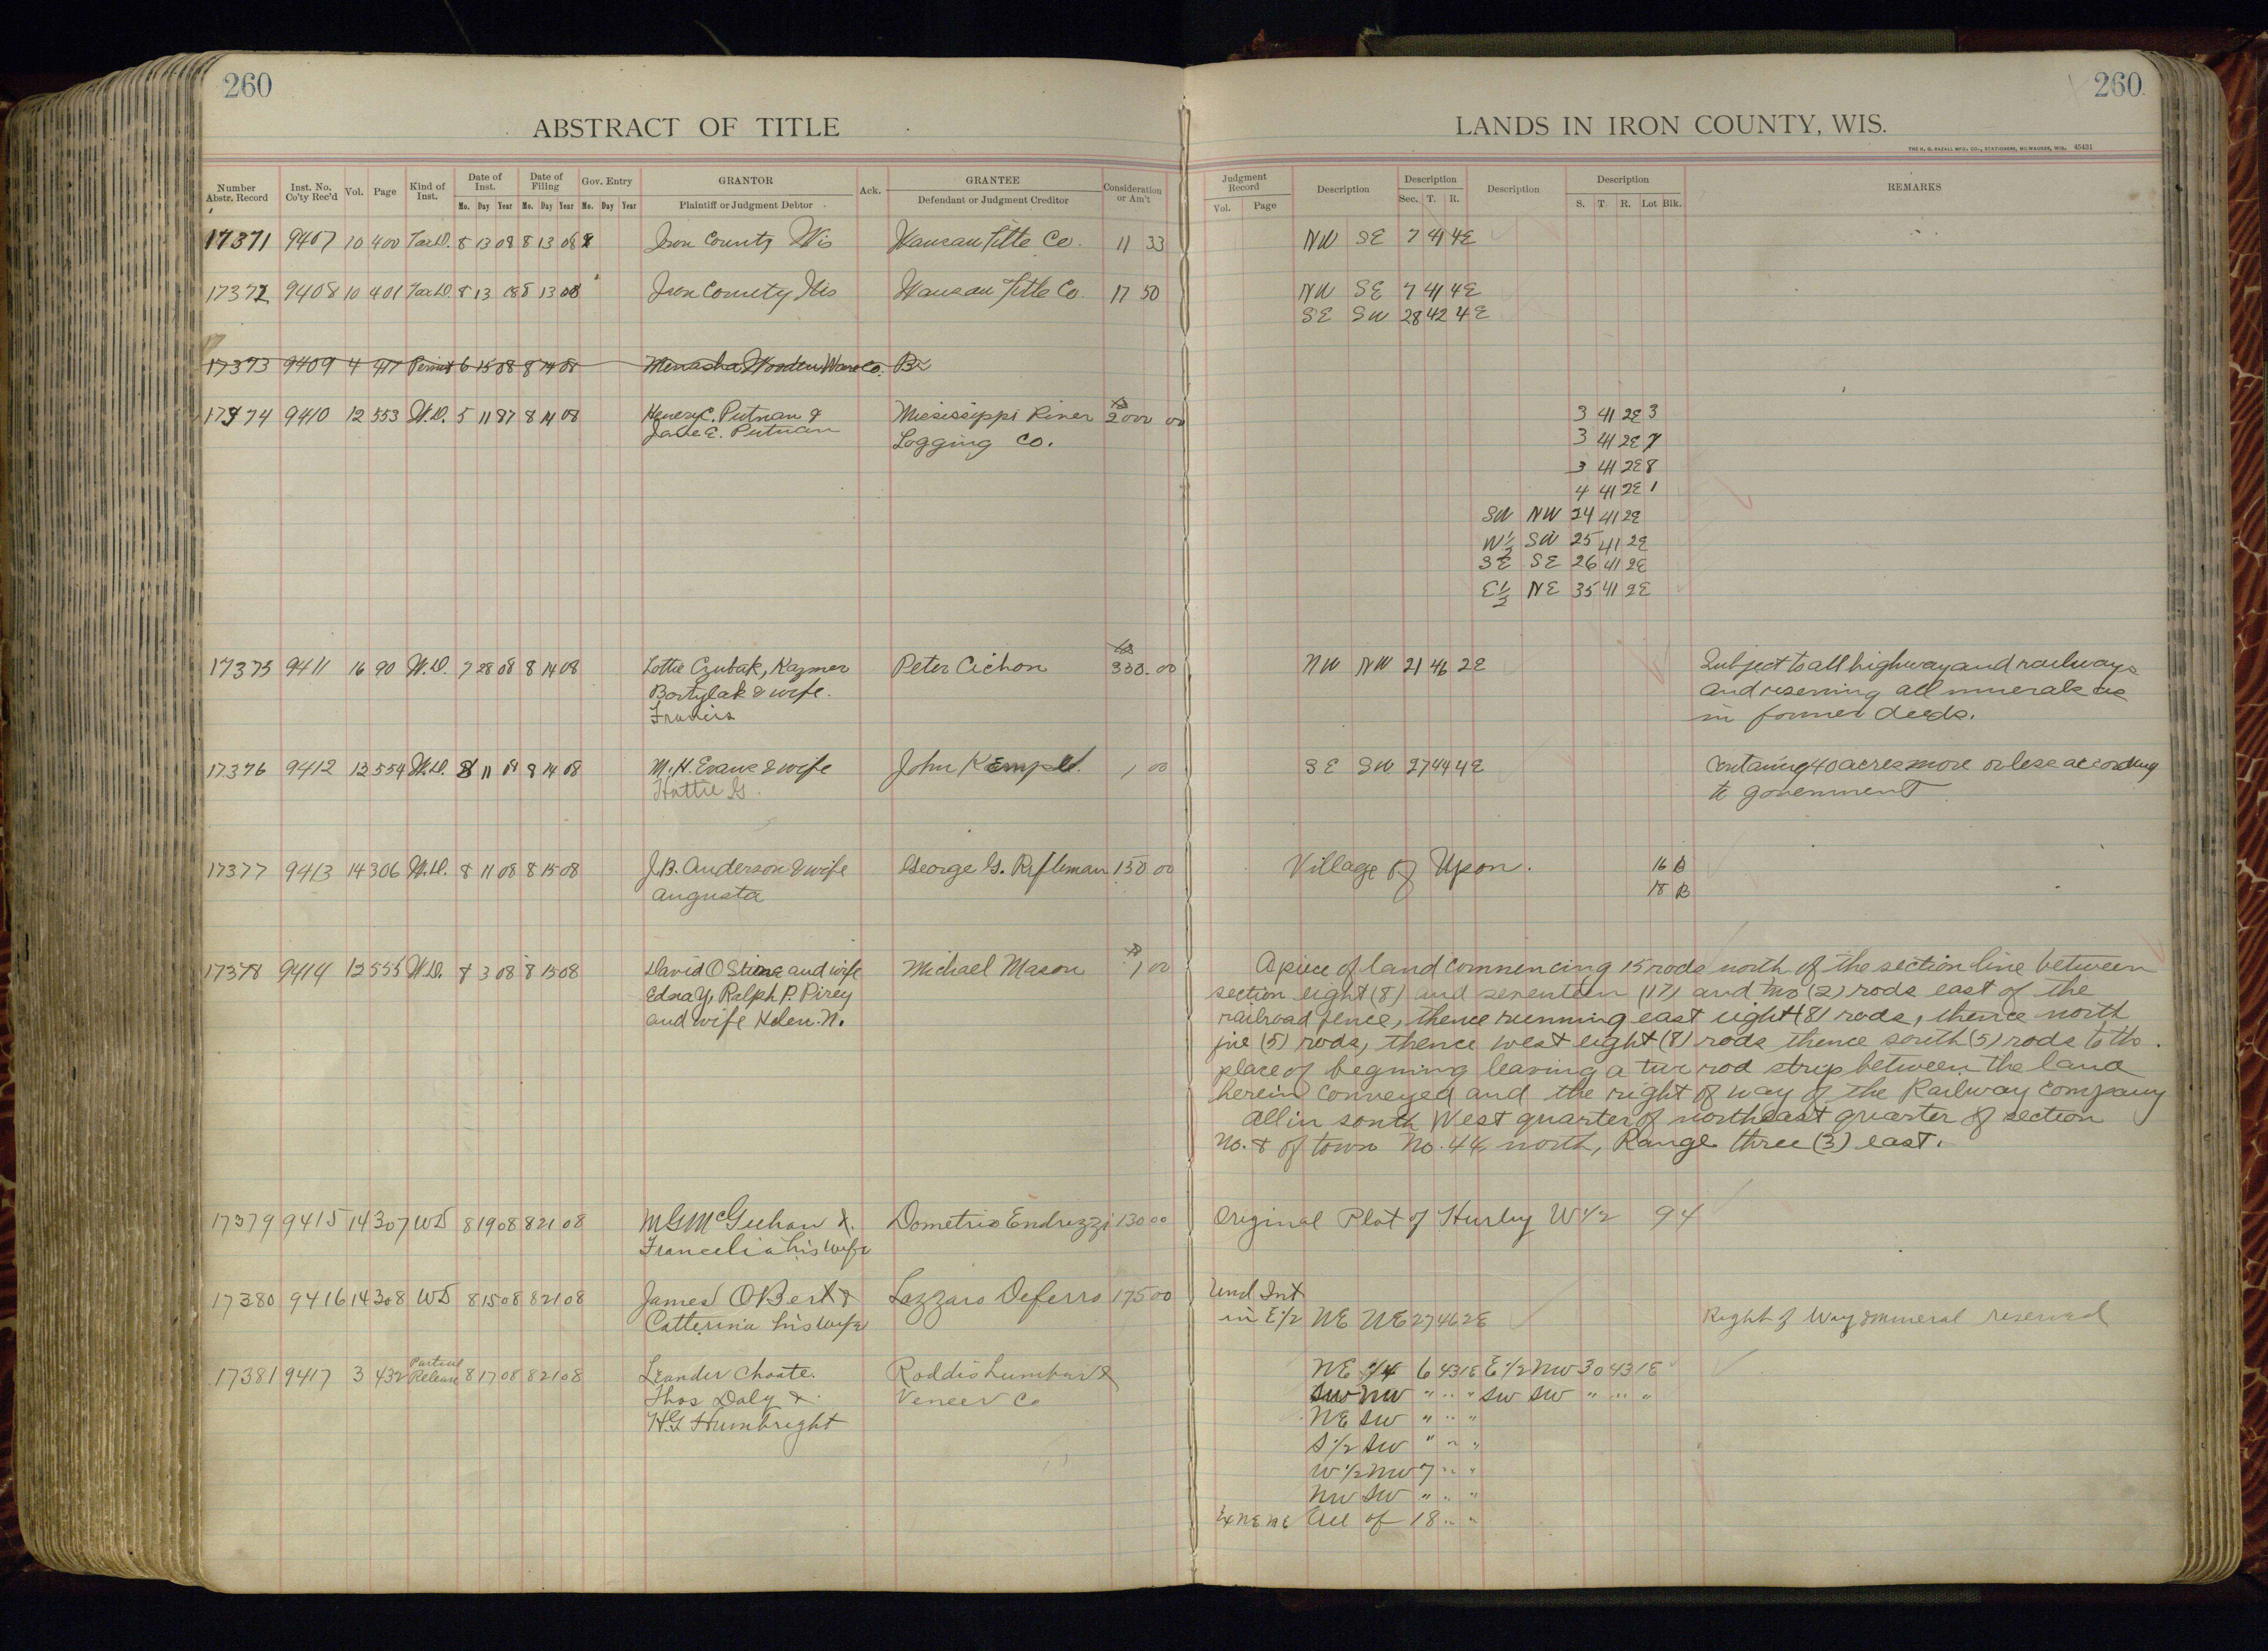 260
260
ABSTRACT OF TITLE
LANDS IN IRON COUNTY, WIS.
THE H. G. RAZALL MFG. CO., STATIONERS, MILWAUKEE, WIS. 45431
Number Abstr. Record Inst. No. Co'ty Rec'd Vol. Page Kind of Inst. Date of Inst. Mo. Day Year Date of Filing Mo. Day Year Gov. Entry Mo. Day Year GRANTOR Plaintiff or Judgment Debtor Ack. GRANTEE Defendant or Judgment Creditor Consideration or Am't
Judgment Record Vol. Page Description Description Sec. T. R. Description Description S. T. R. Lot Blk. REMARKS
17371 9407 10 400 Tax D. 8 13 08 8 13 08 Iron County Wis Wausau Title Co. 11 33 NW SE 7 41 4E
17372 9408 10 401 Tax D. 8 13 08 8 13 08 Iron County Wis Wausau Title Co. 17 50 NW SE 7 41 4E
SE SW 28 42 4E
17373 9409 4 417 Permit 6 15 08 8 14 08 Menasha Wooden Ware Co.
17374 9410 12 553 W.D. 5 11 87 8 14 08 Henry C. Putnam & Mississippi River 2000 00 3 41 2E 3
Jane E. Putnam Logging Co. 3 41 2E 7
3 41 2E 8
4 41 2E 1
SW NW 24 41 2E
W½ SW 25 41 2E
SE SE 26 41 2E
E½ NE 35 41 2E
17375 9411 16 90 W.D. 7 28 08 8 14 08 Lottie Czubak, Kazmer Peter Cichon 330.00 NW NW 21 46 2E Subject to all highway and railways
Bortylak & wife. and reserving all minerals as
Francis in former deeds.
17376 9412 12 554 W.D. 8 11 08 8 14 08 M. H. Evans & wife John Kempel. 1 00 SE SW 27 44 4E Containing 40 acres more or less according
Hattie G. to government
17377 9413 14 306 W.D. 8 11 08 8 15 08 J.B. Anderson & wife George G. Rifleman 150 00 Village of Upson. 16 B
Augusta 18 B
17378 9414 12 555 W.D. 8 3 08 8 15 08 David O Stine and wife Michael Mason 1 00 A piece of land commencing 15 rods north of the section line between
Edna Y, Ralph P. Pirey section eight (8) and seventeen (17) and two (2) rods east of the
and wife Helen N. railroad fence, thence running east eight (8) rods, thence north
five (5) rods, thence west eight (8) rods thence south (5) rods to the
place of begining leaving a two rod strip between the land
herein conveyed and the right of way of the Railway company
All in south West quarter of northeast quarter of section
No. 8 of town No. 44, north, Range three (3) east.
17379 9415 14 307 WD 8 19 08 8 21 08 M G McGeehan & Dometrio Endrizzi 130 00 Original Plat of Hurley W 1/2 94
Francelia his wife
17380 9416 14 308 WD 8 15 08 8 21 08 James OBert & Lazzaro Deferro 175 00 Und Int
Catterina his wife in E 1/2 NE NE 27 46 2E Right of Way & mineral reserved
17381 9417 3 432 Partial Release 8 17 08 8 21 08 Leander Choate. Roddis Lumber & NE 1/4 6 43 1E E 1/2 NW 30 43 1E
Thos Daly & Veneer Co SW NW " " " SW SW " " "
H.G Humbright NE SW " " "
S 1/2 SW " " "
W 1/2 NW 7 " "
NW SW " " "
Ex NE NE All of 18 " "